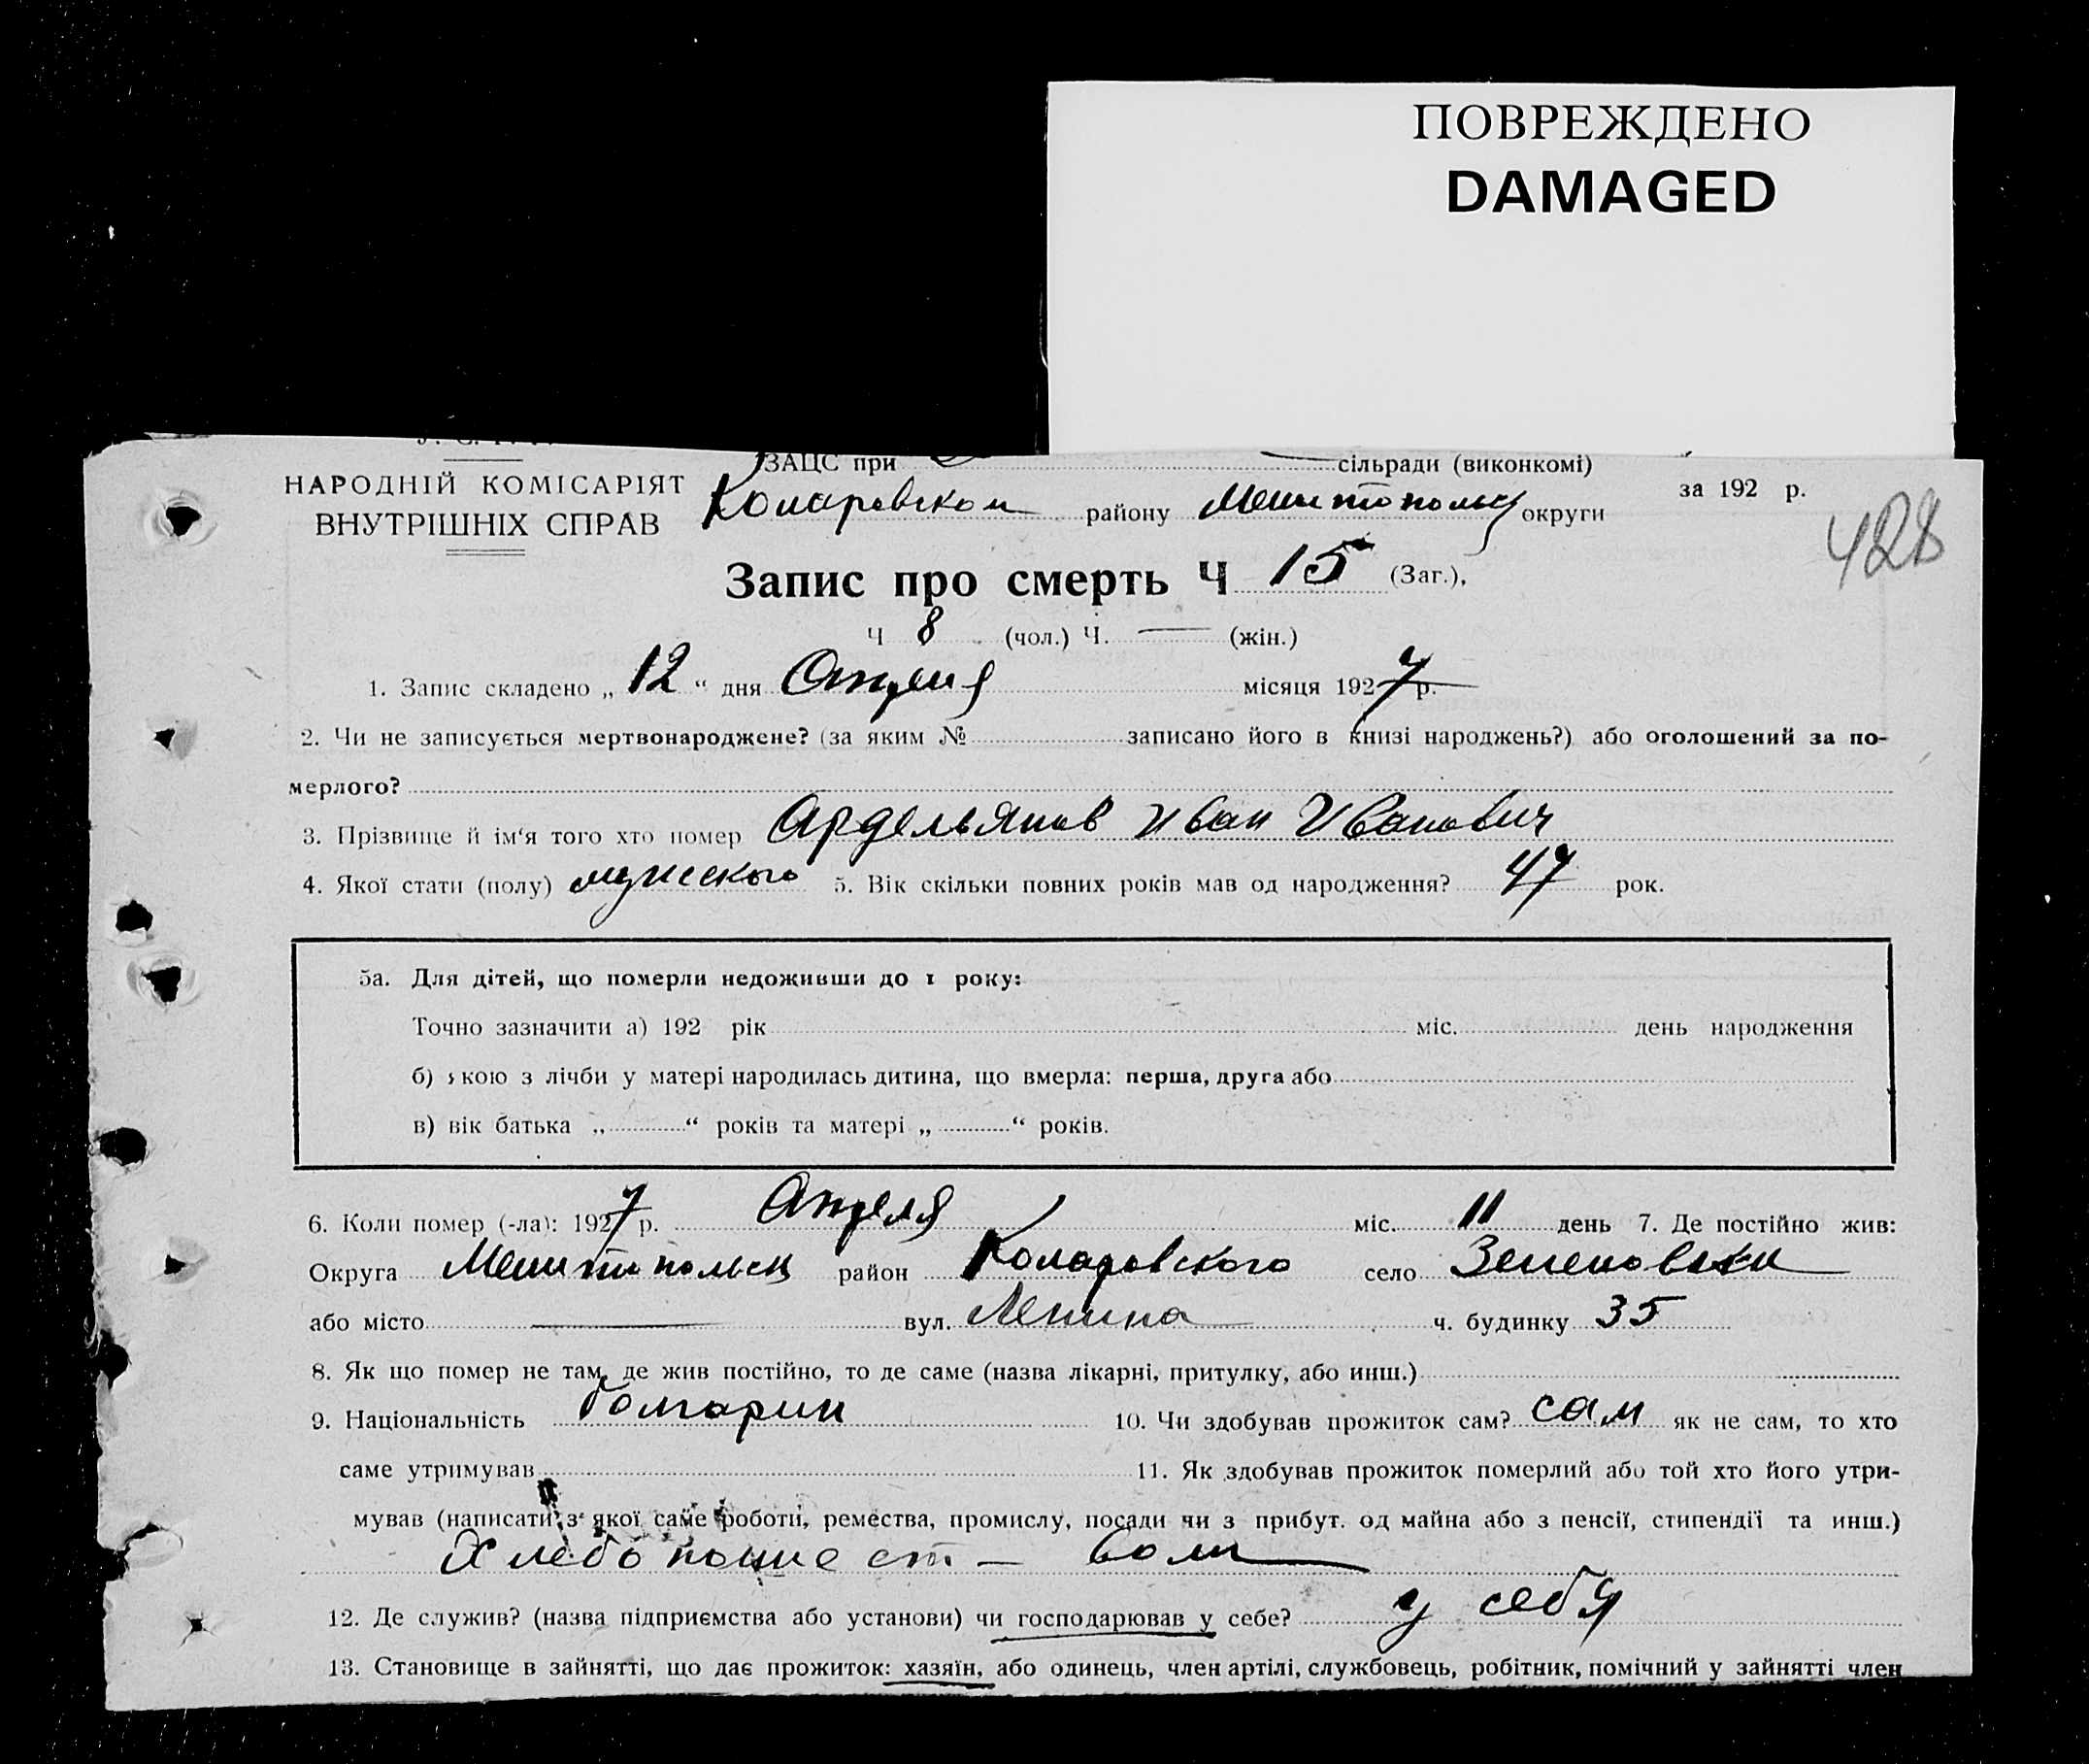 ПОВРЕЖДЕНО
DAMAGED
ЗАЦС при сільради (виконкомі)
НАРОДНІЙ КОМІСАРІЯТ
ВНУТРІШНІХ СПРАВ
Коларовском району Мелитопольск округи
за 192 р.
428
Запис про смерть Ч 15 (Заг.),
Ч 8 (чол.) Ч. — (жін.)
1. Запис складено „ 12 “ дня Апреля місяця 1927 р.
2. Чи не записується мертвонароджене? (за яким № записано його в книзі народжень?) або оголошений за по-
мерлого?
3. Прізвище й ім'я того хто помер Ардельянов Иван Иванович
4. Якої стати (полу) мужского 5. Вік скільки повних років мав од народження? 47 рок.
5а. Для дітей, що померли недоживши до 1 року:
Точно зазначити а) 192 рік міс. день народження
б) якою з лічби у матері народилась дитина, що вмерла: перша, друга або
в) вік батька „ “ років та матері „ “ років.
6. Коли помер (-ла): 1927 р. Апреля міс. 11 день 7. Де постійно жив:
Округа Мелитопольск район Коларовского село Зеленовки
або місто — вул. Ленина ч. будинку 35
8. Як що помер не там, де жив постійно, то де саме (назва лікарні, притулку, або инш.)
9. Національність болгарин 10. Чи здобував прожиток сам? сам як не сам, то хто
саме утримував 11. Як здобував прожиток померлий або той хто його утри-
мував (написати з якої саме роботи, ремества, промислу, посади чи з прибут. од майна або з пенсії, стипендії та инш.)
Хлебопашест- вом
12. Де служив? (назва підприємства або установи) чи господарював у себе? у себя
13. Становище в зайнятті, що дає прожиток: хазяїн, або одинець, член артілі, службовець, робітник, помічний у зайнятті член